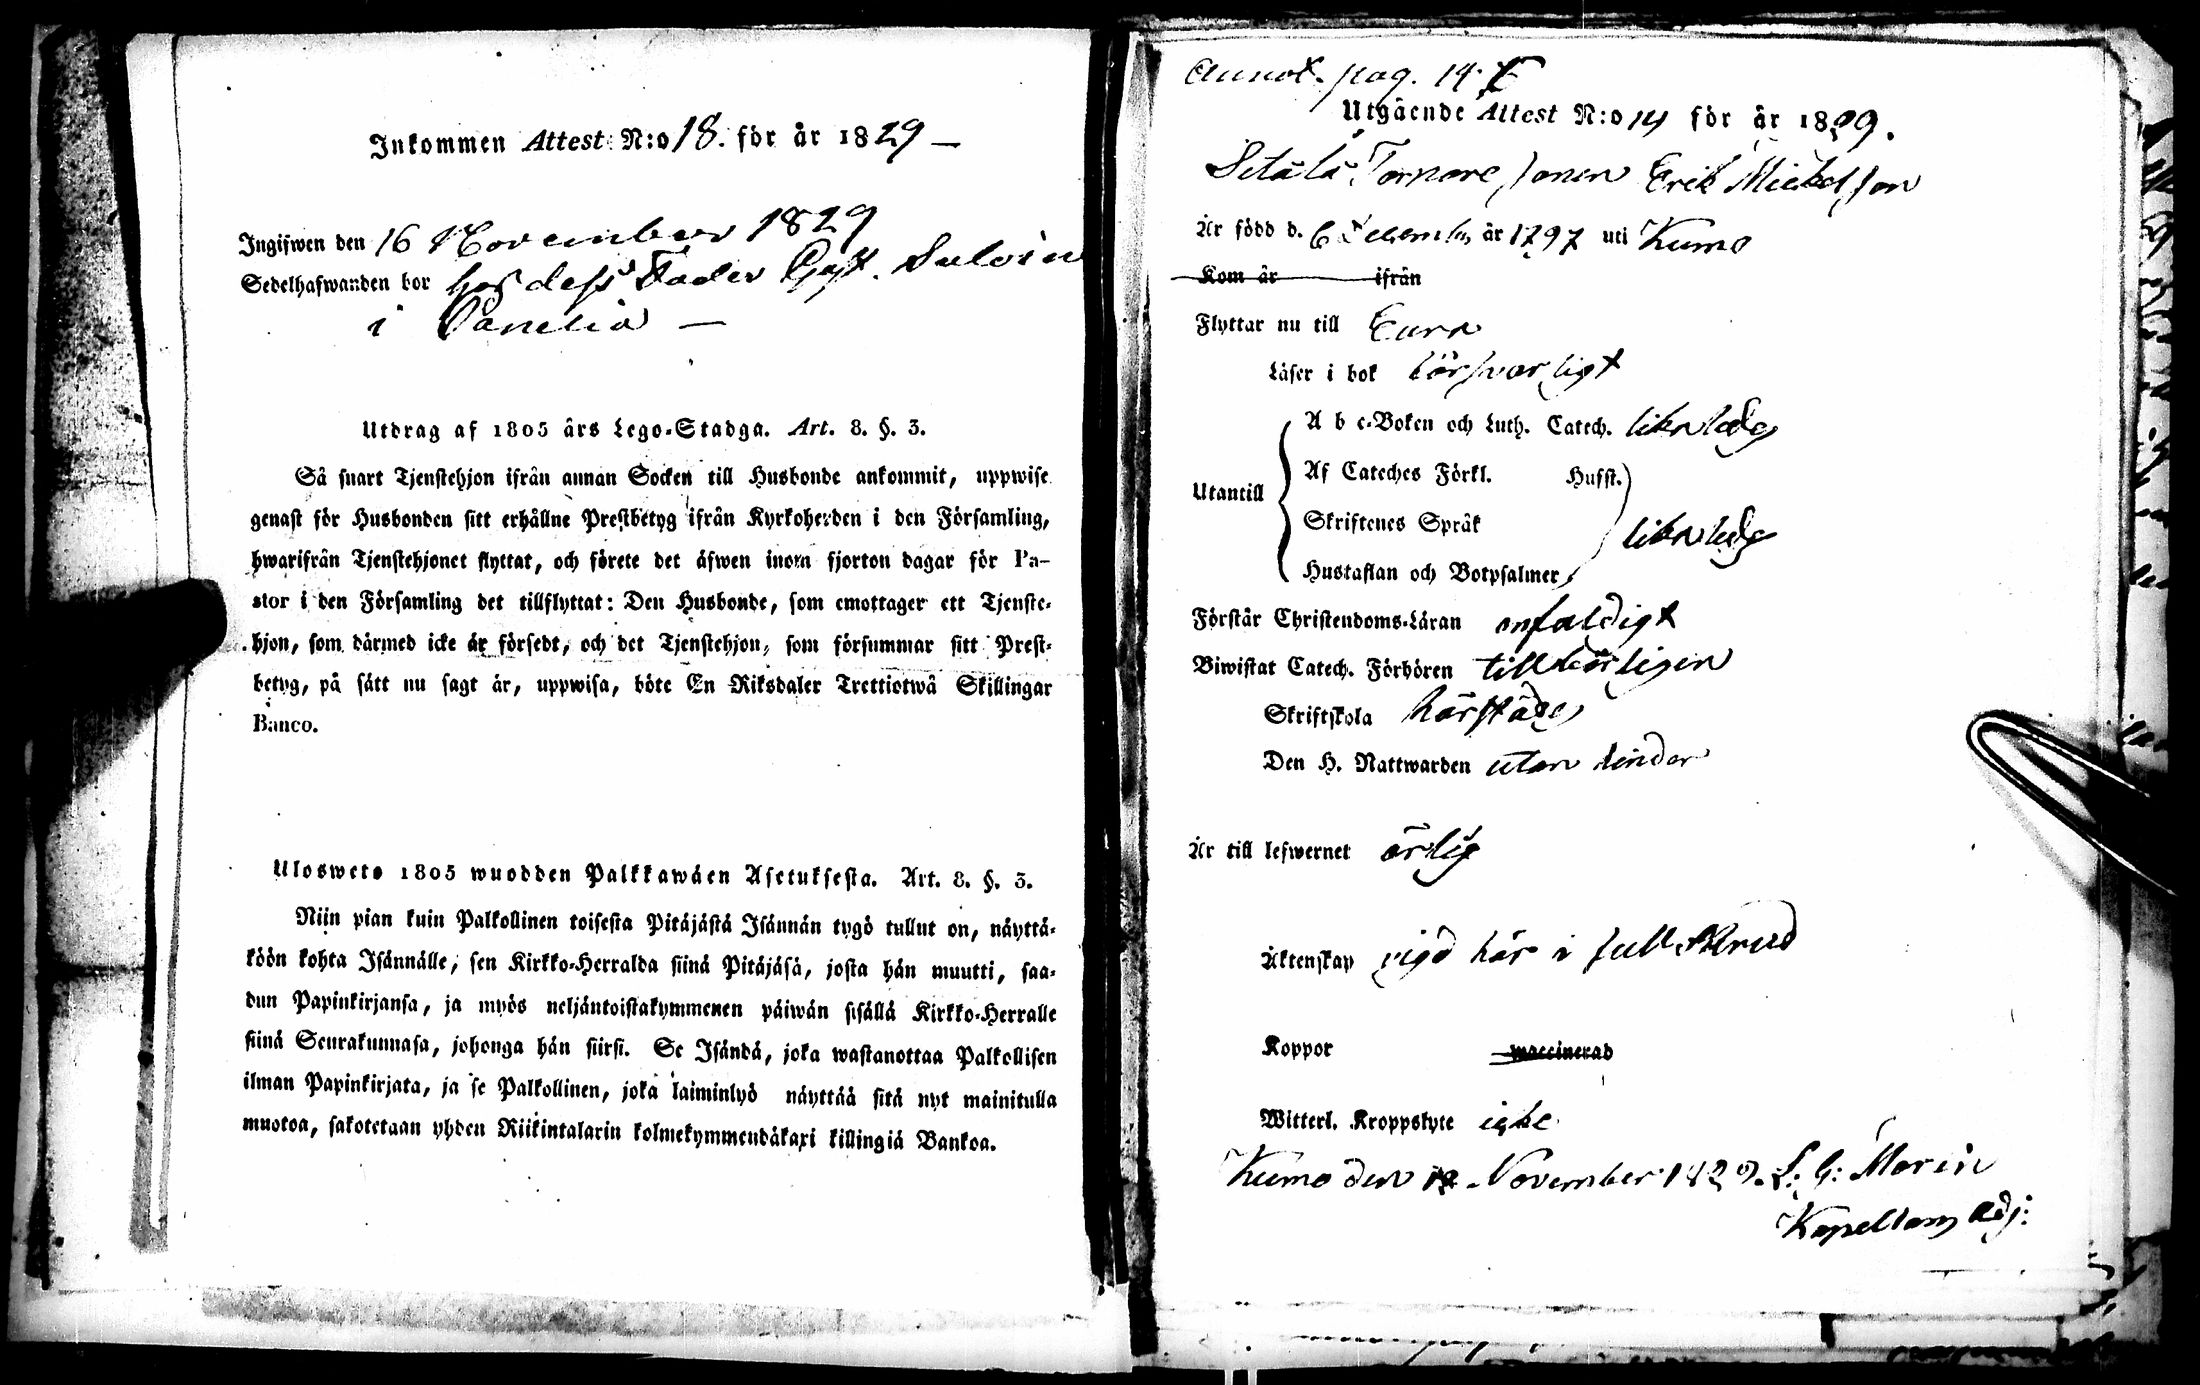 Inkommen Attest N:o 18. för år 1829 —
Ingifwen den 16 November 1829
Sedelhafwanden bor hos dess Fader Gust. Salvin
i Panelia —
Utdrag af 1805 års Lego-Stadga. Art. 8. §. 3.
Så snart Tjenstehjon ifrån annan Socken till Husbonde ankommit, uppwise
genast för Husbonden sitt erhållne Prestbetyg ifrån Kyrkoherden i den Församling,
hwarifrån Tjenstehjonet flyttat, och förete det äfwen inom fjorton dagar för Pa-
stor i den Församling det tillflyttat: Den Husbonde, som emottager ett Tjenste-
hjon, som därmed icke är försedt, och det Tjenstehjon, som försummar sitt Prest-
betyg, på sätt nu sagt är, uppwisa, böte En Riksdaler Trettiotwå Skillingar
Banco.
Ulosweto 1805 wuodden Palkkawäen Asetuksesta. Art. 8. §. 3.
Niin pian kuin Palkollinen toisesta Pitäjästä Isännän tygö tullut on, näyttä-
köön kohta Isännälle, sen Kirkko-Herralda siinä Pitäjäsä, josta hän muutti, saa-
dun Papinkirjansa, ja myös neljäntoistakymmenen päiwän sisällä Kirkko-Herralle
siinä Seurakunnasa, johonga hän siirsi. Se Isändä, joka wastanottaa Palkollisen
ilman Papinkirjata, ja se Palkollinen, joka laiminlyö näyttää sitä nyt mainitulla
muotoa, sakotetaan yhden Riikintalarin kolmekymmendäkaxi killingiä Bankoa.
Annot. pag. 14
Utgående Attest N:o 14 för år 1829.
Setälä Torpare sonen Erik Mickelsson
Är född d. 6 December år 1797 uti Kumo
Kom år ifrån
Flyttar nu till Eura
Läser i bok försvarligt
A b c-Boken och Luth. Catech. likaledes
Af Cateches Förkl. Husst.
Utantill
Skriftenes Språk likaledes
Hustaflan och Botpsalmer
Förstår Christendoms-Läran enfaldigt
Biwistat Catech. Förhören tillbörligen
Skriftskola härstädes
Den H. Nattwarden utan hinder
Är till lefwernet ärlig
Äktenskap vigd här i full skrud
Koppor waccinerad
Witterl. Kroppslyte icke
Kumo den 12 November 1829. L: G: Morin
Kapellans Adj: